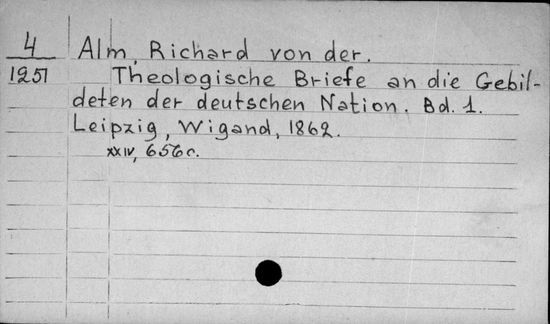 4
1251
Alm, Richard von der.
Theologische Briefe an die Gebil-
deten der deutschen Nation. Bd. 1.
Leipzig, Wigand, 1862.
XXIV, 656 c.